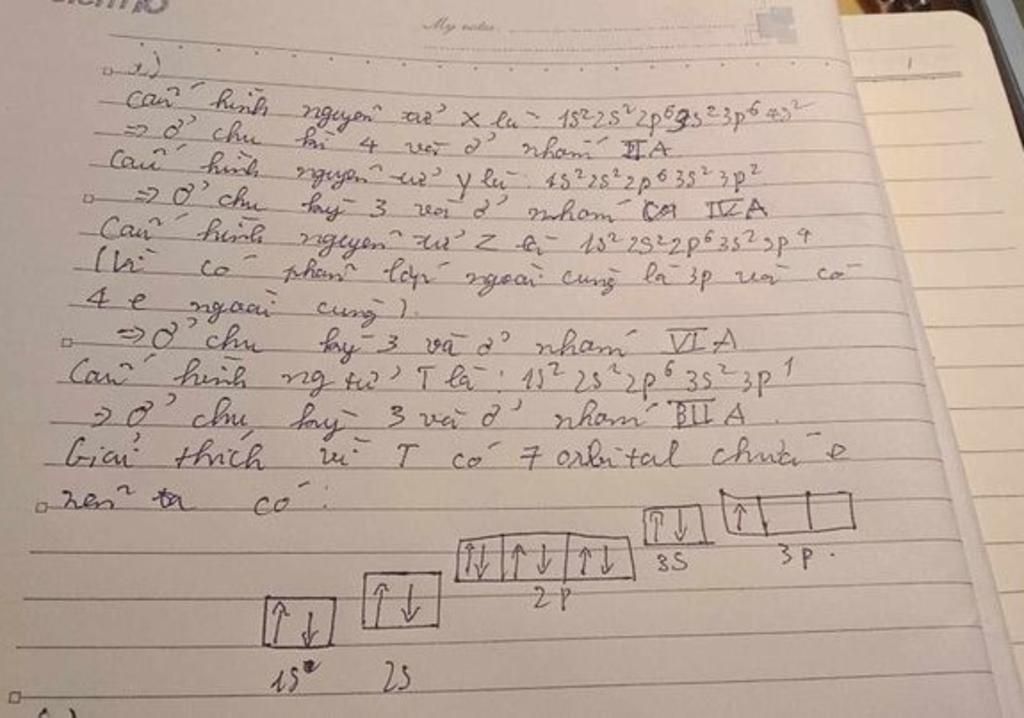 My notes
1)
Cấu hình nguyên tử X là: 1s² 2s² 2p⁶ 3s² 3p⁶ 4s²
⇒ Ở chu kì 4 và ở nhóm IIA
Cấu hình nguyên tử Y là: 1s² 2s² 2p⁶ 3s² 3p²
⇒ Ở chu kỳ 3 và ở nhóm IVA
Cấu hình nguyên tử Z là 1s² 2s² 2p⁶ 3s² 3p⁴
(Vì có phân lớp ngoài cùng là 3p và có
4 e ngoài cùng).
⇒ Ở chu kỳ 3 và ở nhóm VIA
Cấu hình ng tử T là: 1s² 2s² 2p⁶ 3s² 3p¹
⇒ Ở chu kỳ 3 và ở nhóm III A
Giải thích vì T có 7 orbital chứa e
nên ta có:
↑↓ ↑↓ ↑↓ ↑↓ ↑↓ ↑↓ ↑
1s 2s 2p 3s 3p.